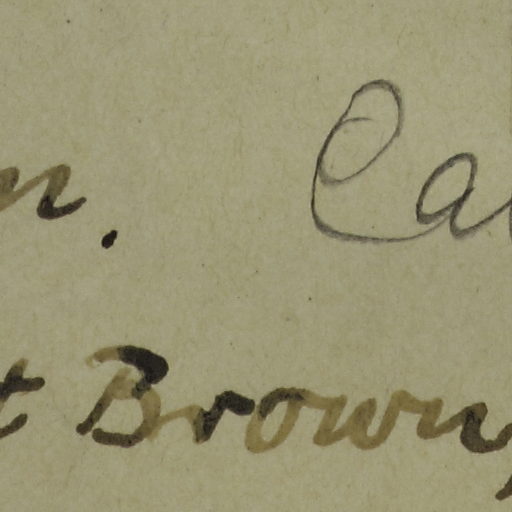 n. Ca
t Brown,